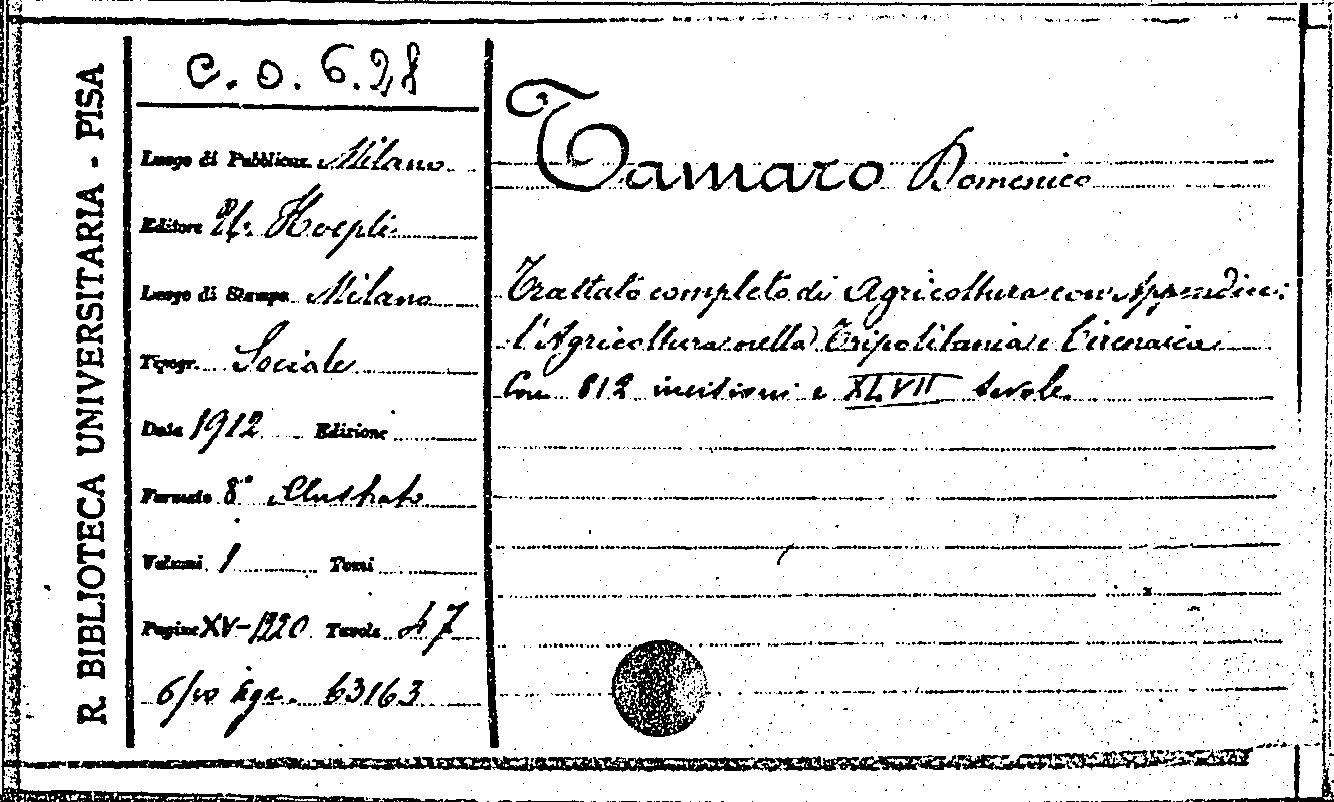 R. BIBLIOTECA UNIVERSITARIA - PISA
C. O. 6.28
Luogo di Pubblicaz. Milano
Editore U. Hoepli
Luogo di Stampa Milano
Tipogr. Sociale
Data 1912 Edizione
Formato 8° illustrato
Volumi 1 Tomi
Pagine XV-1220 Tavole 47
63163
Tamaro Domenico
Trattato completo di Agricoltura con Appendice:
l'Agricoltura nella Tripolitania e Cirenaica
Con 812 incisioni e XLVII tavole.